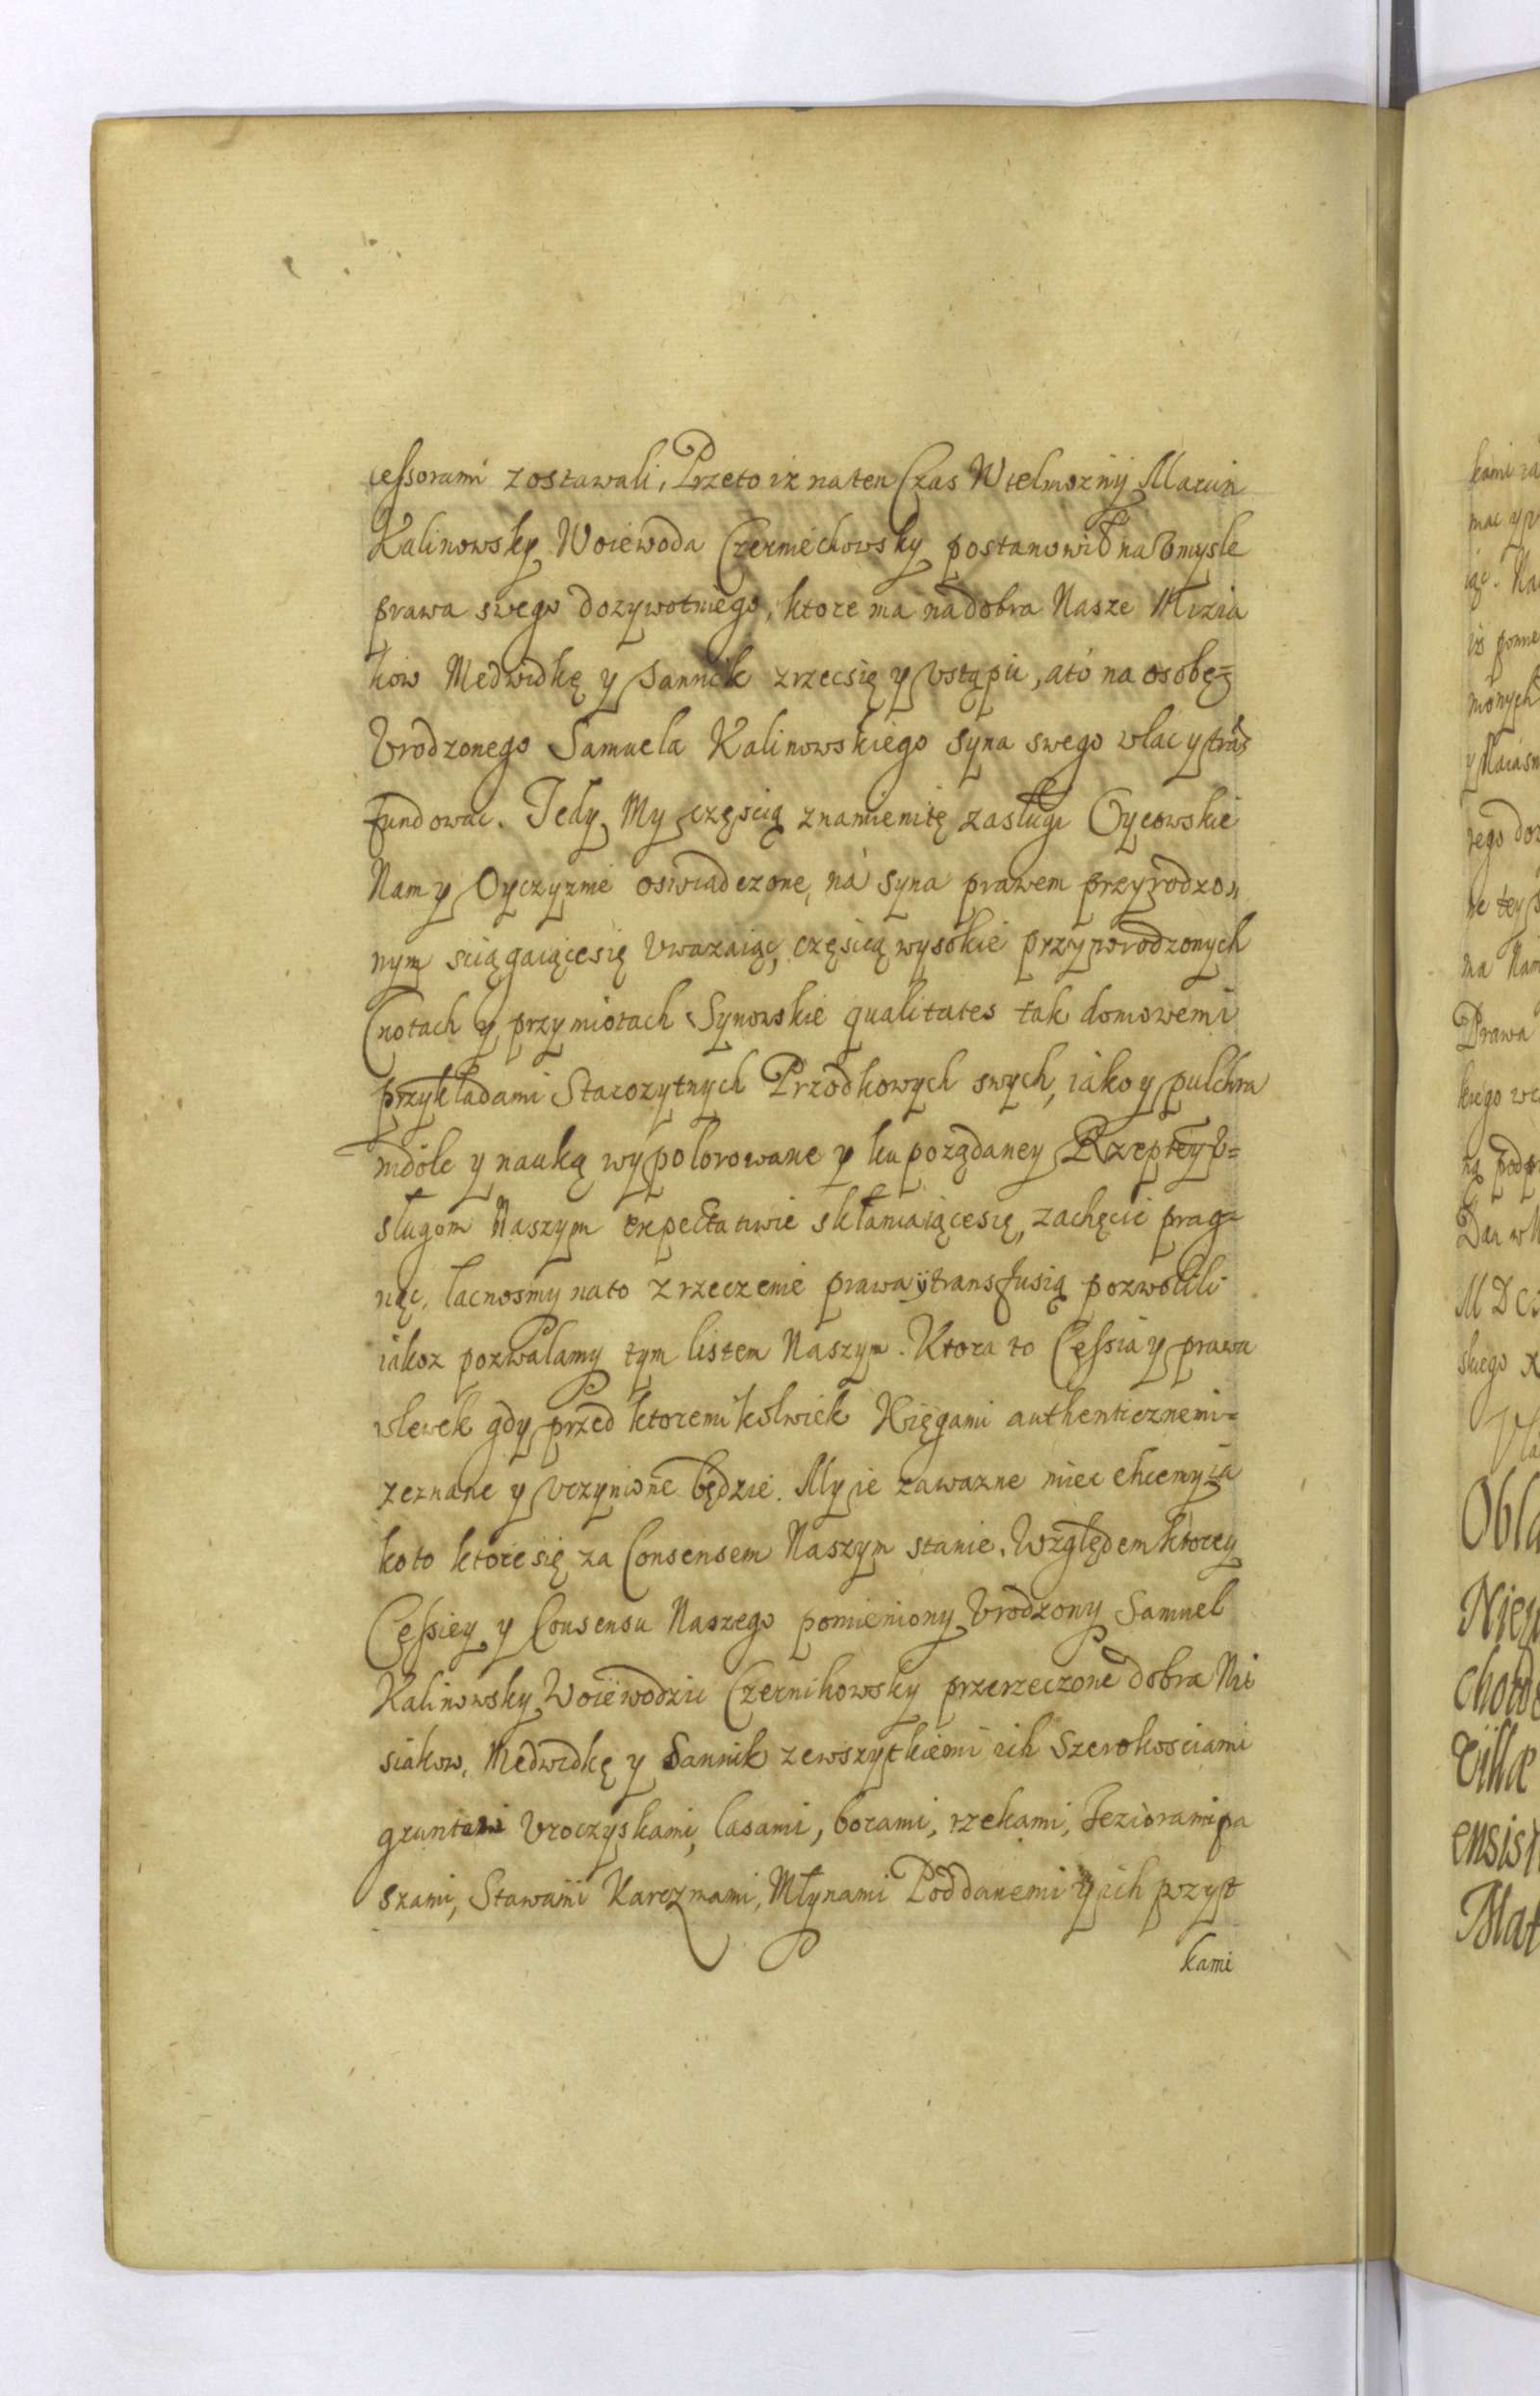 cessorami zostawali, Przeto iz na ten Czas Wielmozny Marcin
Kalinowsky Woiewoda Czerniechowsky postanowił na Vmysle
prawa swego dozywotniego, ktore ma na dobra Nasze Mizia
kow Medwidkę y Sannik zrzec się y vstąpic, a to na osobę
Vrodzonego Samuela Kalinowskiego syna swego wlac y trās
fundowac. Tedy My częścią znamienitę zasługi Oycowskie
Nam y Oyczyznie oswiadczone, ná syna prawem przyrodzo
nym sciągaiące się Vwazaiąc, częścią wysokie przy wrodzonych
Cnotach y przymiotach Synowskie qualitates tak domowemi
przykładami Starozytnych Przodkowych swych, iako y pulchra
indole y nauką wypolorowane y ku poządaney Rzeptey V=
sługom Naszym expectatiwie skłaniaiące się, zachęcic prag=
nąc, lacnosmy na to zrzeczenie prawa y transfusią pozwolili
iakoz pozwalamy tym listem Naszym. Ktora to Cessia y prawa
wlewek gdy przed ktoremikolwiek Xięgami authenticznemi=
zeznane y vczynione będzie. My ie za wazne miec chcemy ia
ko to ktore się za Consensem Naszym stanie. Względem ktorey
Cessiey y Consensu Naszego pomieniony Vrodzony Samuel
Kalinowsky Woiewodzic Czernihowsky przerzeczone dobra Mi
siakow, Medwidkę y Sannik ze wszytkiemi ich Szerokosciami
gruntami Vroczyskami, lasami, borami, rzekami, Jeziorami pa
szami, Stawami Karczmami, Młynami Poddanemi y ich wzyt
kami